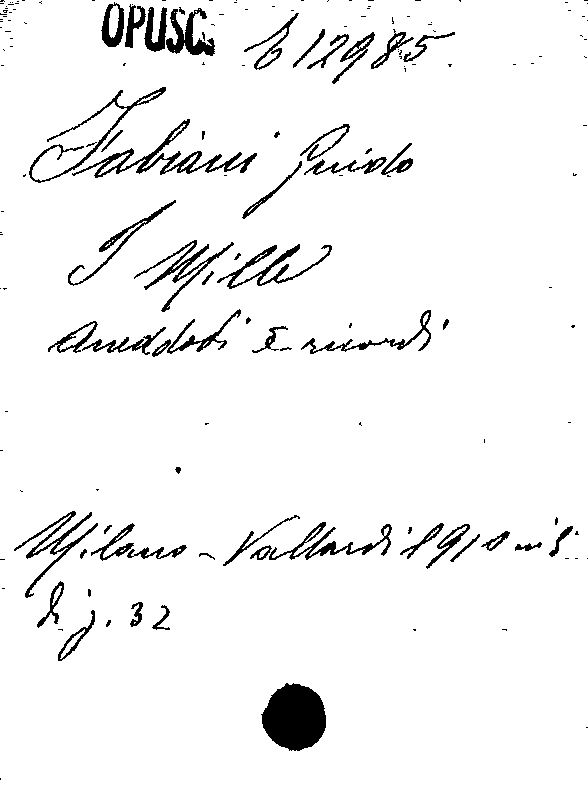 OPUSC. E 12985
Fabiani Guido
I Mille
Aneddoti e ricordi
Milano - Vallardi 1910 in 8
di p. 32